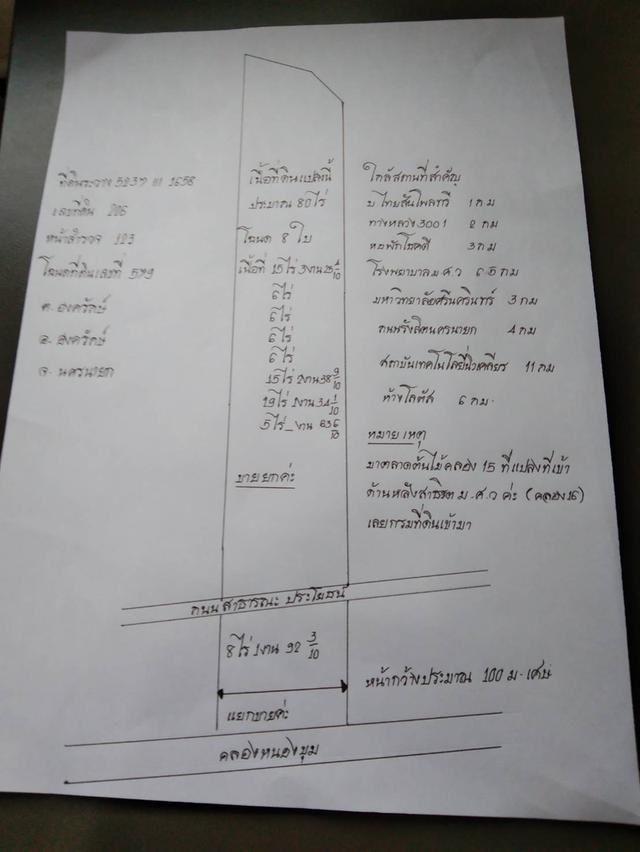 ที่ดินระวาง 5237 III 1658
เลขที่ดิน 206
หน้าสำรวจ 123
โฉนดที่ดินเลขที่ 579
ต. องครักษ์
อ. องครักษ์
จ. นครนายก
เนื้อที่ดินแปลงนี้
ประมาณ 80 ไร่
โฉนด 8 ใบ
เนื้อที่ 15 ไร่ 3 งาน
6 ไร่
6 ไร่
6 ไร่
6 ไร่
15 ไร่ งาน 38 9/10
19 ไร่ 1 งาน 34 1/10
5 ไร่ _ งาน 63 6/10
ขายยกค่ะ
ใกล้สถานที่สำคัญ
บ ไทยสันโพลทรี 1 กม
ทางหลวง 3001 2 กม
หอพักโชคดี 3 กม
โรงพยาบาล ม.ศ.ว 6.5 กม
มหาวิทยาลัยศรีนครินทร์ 3 กม
ถนนรังสิตนครนายก 4 กม
สถาบันเทคโนโลยี่นิวเคลียร 11 กม
ห้างโลตัส 6 กม.
หมายเหตุ
มาตลาดต้นไม้คลอง 15 ที่แปลงที่เข้า
ด้านหลังสาธิต ม.ศ.ว ค่ะ (คลอง 16)
เลยกรมที่ดินเข้ามา
ถนนสาธารณะ ประโยชน์
8 ไร่ 1 งาน 92 3/10
หน้ากว้างประมาณ 100 ม. เศษ
แยกขายค่ะ
คลองหนองขุม